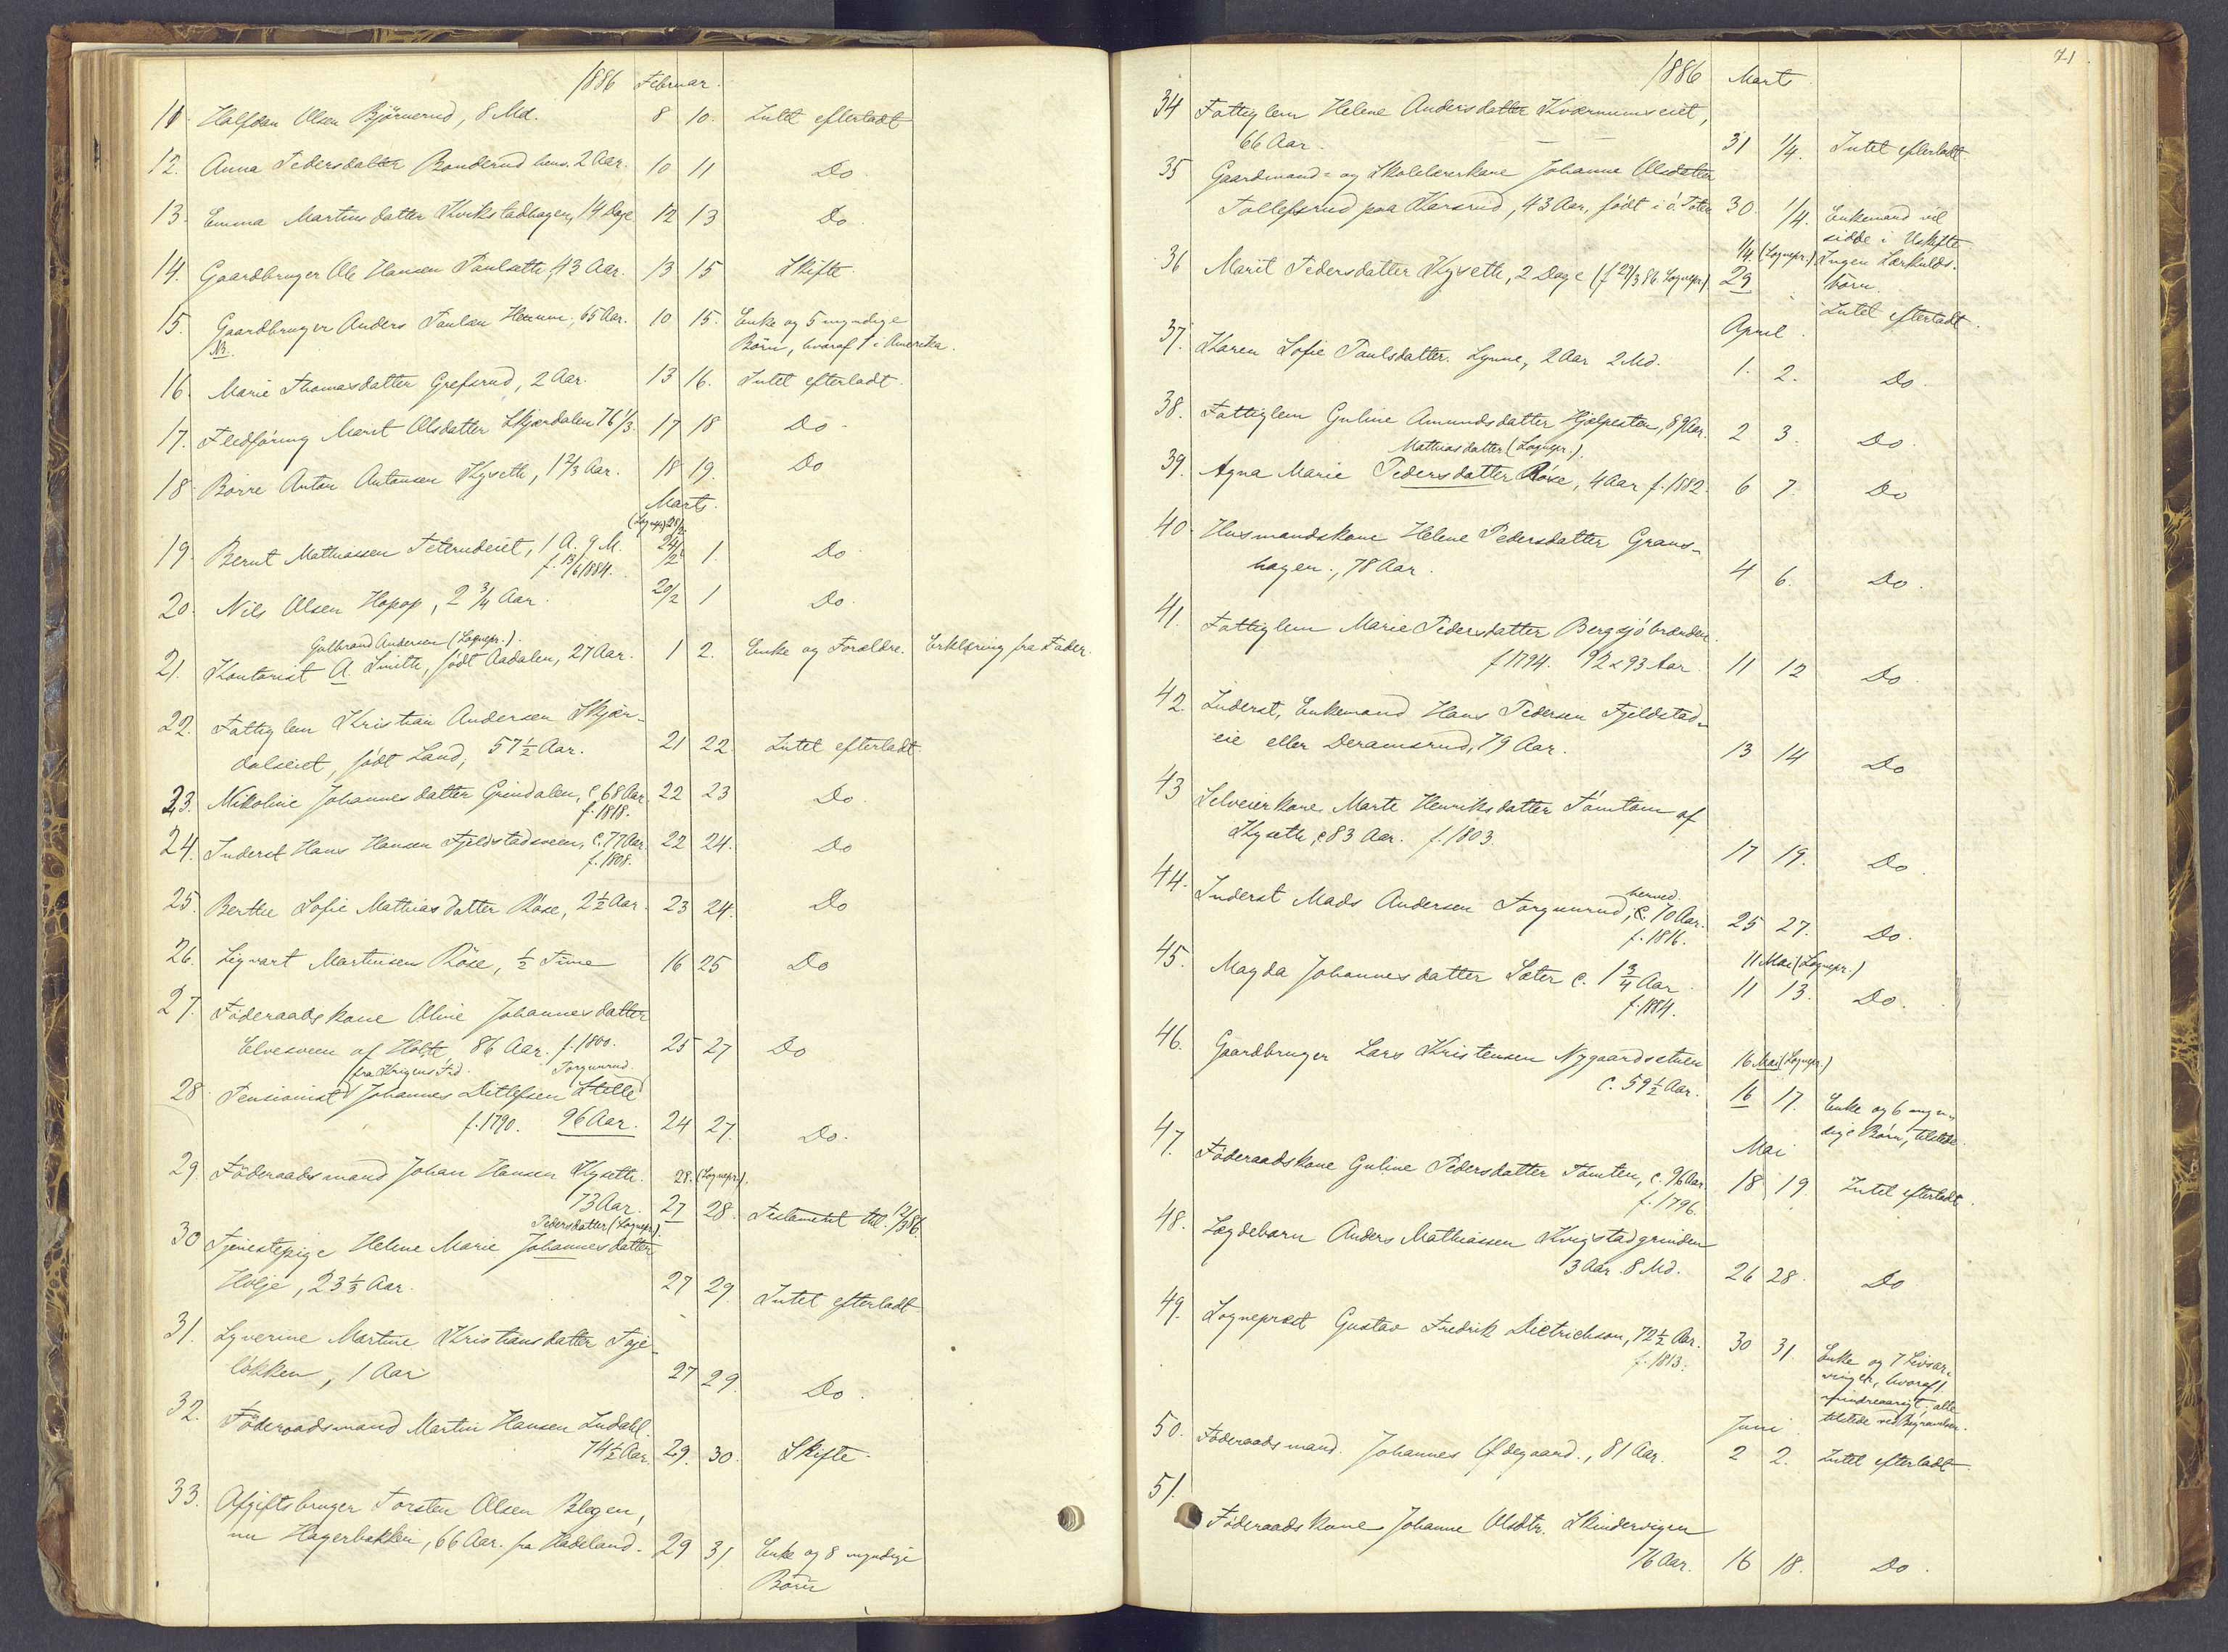 1886 Februar.
11. Halfdan Olsen Bjørnerud, 8 Md. 8 10. Intet efterladt
12. Anna Pedersdatter Bonderud hens. 2 Aar. 10 11 Do
13. Emma Martinsdatter Kvikstadhagen, 14 Dage 12 13 Do
14. Gaardbruger Ole Hansen Paulsætte, 43 Aar. 13 15 Skifte
15. Gaardbruger Anders Paulsen 65 Aar. 10 15. Enke og 5 myndige
NB. Børn, hvoraf 1 i Amerika.
16. Marie Thomasdatter Grefsrud, 2 Aar. 13 16. Intet efterladt.
17. Fledføring Marit Olsdatter Skjærdalen 76 1/3. 17 18 Do
18 Børre Anton Antonsen Kyseth, 1 2/3 Aar. 18 19. Do
Marts.
(Sognepr.) 28/2
19. Bernt Mathiassen Feterudeiet, 1 A. 9 M. 24/2 1. Do
f. 13/6 1884.
20. Nils Olsen Hopop, 2 3/4 Aar. 20/2 1 Do.
Gulbrand Andersen (Sognepr.).
21. Kontorist A. Smith, født Aadalen, 27 Aar. 1 2. Enke og Forældre. Erklæring fra Fader.
22. Fattiglem Kristian Andersen Skjær-
dalseiet, født Land, 57 1/2 Aar. 21 22. Intet efterladt.
23. Nikoline Johannesdatter Grindalen, c 68 Aar. 22 23 Do.
f. 1818.
24. Inderst Hans Hansen Fjeldstadsveen, c. 77 Aar. 22 24. Do
f. 1808.
25. Berthe Sofie Mathiasdatter Røse, 2 1/2 Aar. 23 24. Do
26. Sigvart Martinsen Røse, 1/2 Time 16 25 Do
27. Føderaadskone Oline Johannesdatter
Elvesveen af Holte, 86 Aar. f. 1800. 25 27 Do
fra Krigens Tid. Torgunrud.
28 Pensionist Johannes Ditlefsen Stille
f. 1790. 96 Aar. 24 27. Do.
29. Føderaadsmand Johan Hansen Kyseth. 28. (Sognepr.).
73 Aar. 27 28. Testament tbl. 12/3 86.
Pedersdatter (Sognepr.)
30 Tjenestepige Helene Marie Johannesdatter
Holje, 23 1/3 Aar. 27 29. Intet efterladt
31. Syverine Martine Kristiansdatter Foje-
løkken, 1 Aar 27 29. Do.
32. Føderaadsmand Martin Hansen Indahl.
74 1/2 Aar. 29. 30. Skifte.
33. Afgiftsbruger Torsten Olsen Blegen,
nu Hagerbakken, 66 Aar. fra Hadeland. 29 31. Enke og 8 myndige
Børn
71
1886 Marts
34 Fattiglem Helene Andersdatter Kværnumseiet,
66 Aar. 31 1/4. Intet efterladt.
35 Gaardmands- og Skolelærerkone Johanne Olsdatter
Tollefsrud paa Karsrud, 43 Aar, født i ø. Toten 30. 1/4. Enkemand vil
sidde i Uskifte
1/4. (Sognepr.) Ingen Særkulds-
36 Marit Pedersdatter Kyseth, 2 Dage (f 27/3 86. Sognepr.) 29 børn.
Intet efterladt.
April.
37. Karen Sofie Paulsdatter. Lynne, 2 Aar 2 Md. 1. 2. Do.
38. Fattiglem Guline Amundsdatter Hjelpesten, 89 Aar. 2 3. Do.
Mathiasdatter (Sognepr.).
39. Agna Marie Pedersdatter Røse, 4 Aar f. 1882. 6 7. Do
40. Husmandskone Helene Pedersdatter Grans-
hagen., 78 Aar. 4 6. Do.
41. Fattiglem Marie Pedersdatter Bergsjøbrænden.
f 1794. 92 a 93 Aar. 11 12 Do.
42. Inderst, Enkemand Hans Pedersen Fjeldstad-
eie eller Deramsrud, 79 Aar. 13 14 Do
43 Selveierkone Marte Henriksdatter Tømten af
Kyseth, c 83 Aar. f. 1803. 17 19. Do.
44. Inderst Mads Andersen Torgunrud, c. 70 Aar. 25 27. Do.
f. 1816.
11 Mai (Sognepr.)
45. Magda Johannesdatter Sæter c. 1 3/4 Aar. 11 13. Do.
f. 1884.
46. Gaardbruger Lars Kristensen Nygaardsstuen 16 Mai (Sognepr.)
c. 59 1/2 Aar. 16 17. Enke og 6 myn-
dige Børn, tilstede.
Mai
47. Føderaadskone Guline Pedersdatter Tømten, c. 96 Aar. 18 19. Intet efterladt.
f. 1796.
48. Lægdebarn Anders Mathiassen Kvigstadgrinden
3 Aar. 8 Md. 26 28. Do
49. Sognepræst Gustav Fredrik Dietrichson, 72 1/2 Aar. 30 31. Enke og 7 Livsar-
f. 1813. vinger, hvoraf 1
mindreaarigt; alle
Juni. tilstede ved Begravelsen.
50. Føderaadsmand. Johannes Ødegaard., 81 Aar. 2 2. Intet efterladt.
51. Føderaadskone Johanne Olsdtr. Skindervigen
76 Aar. 16 18. Do.